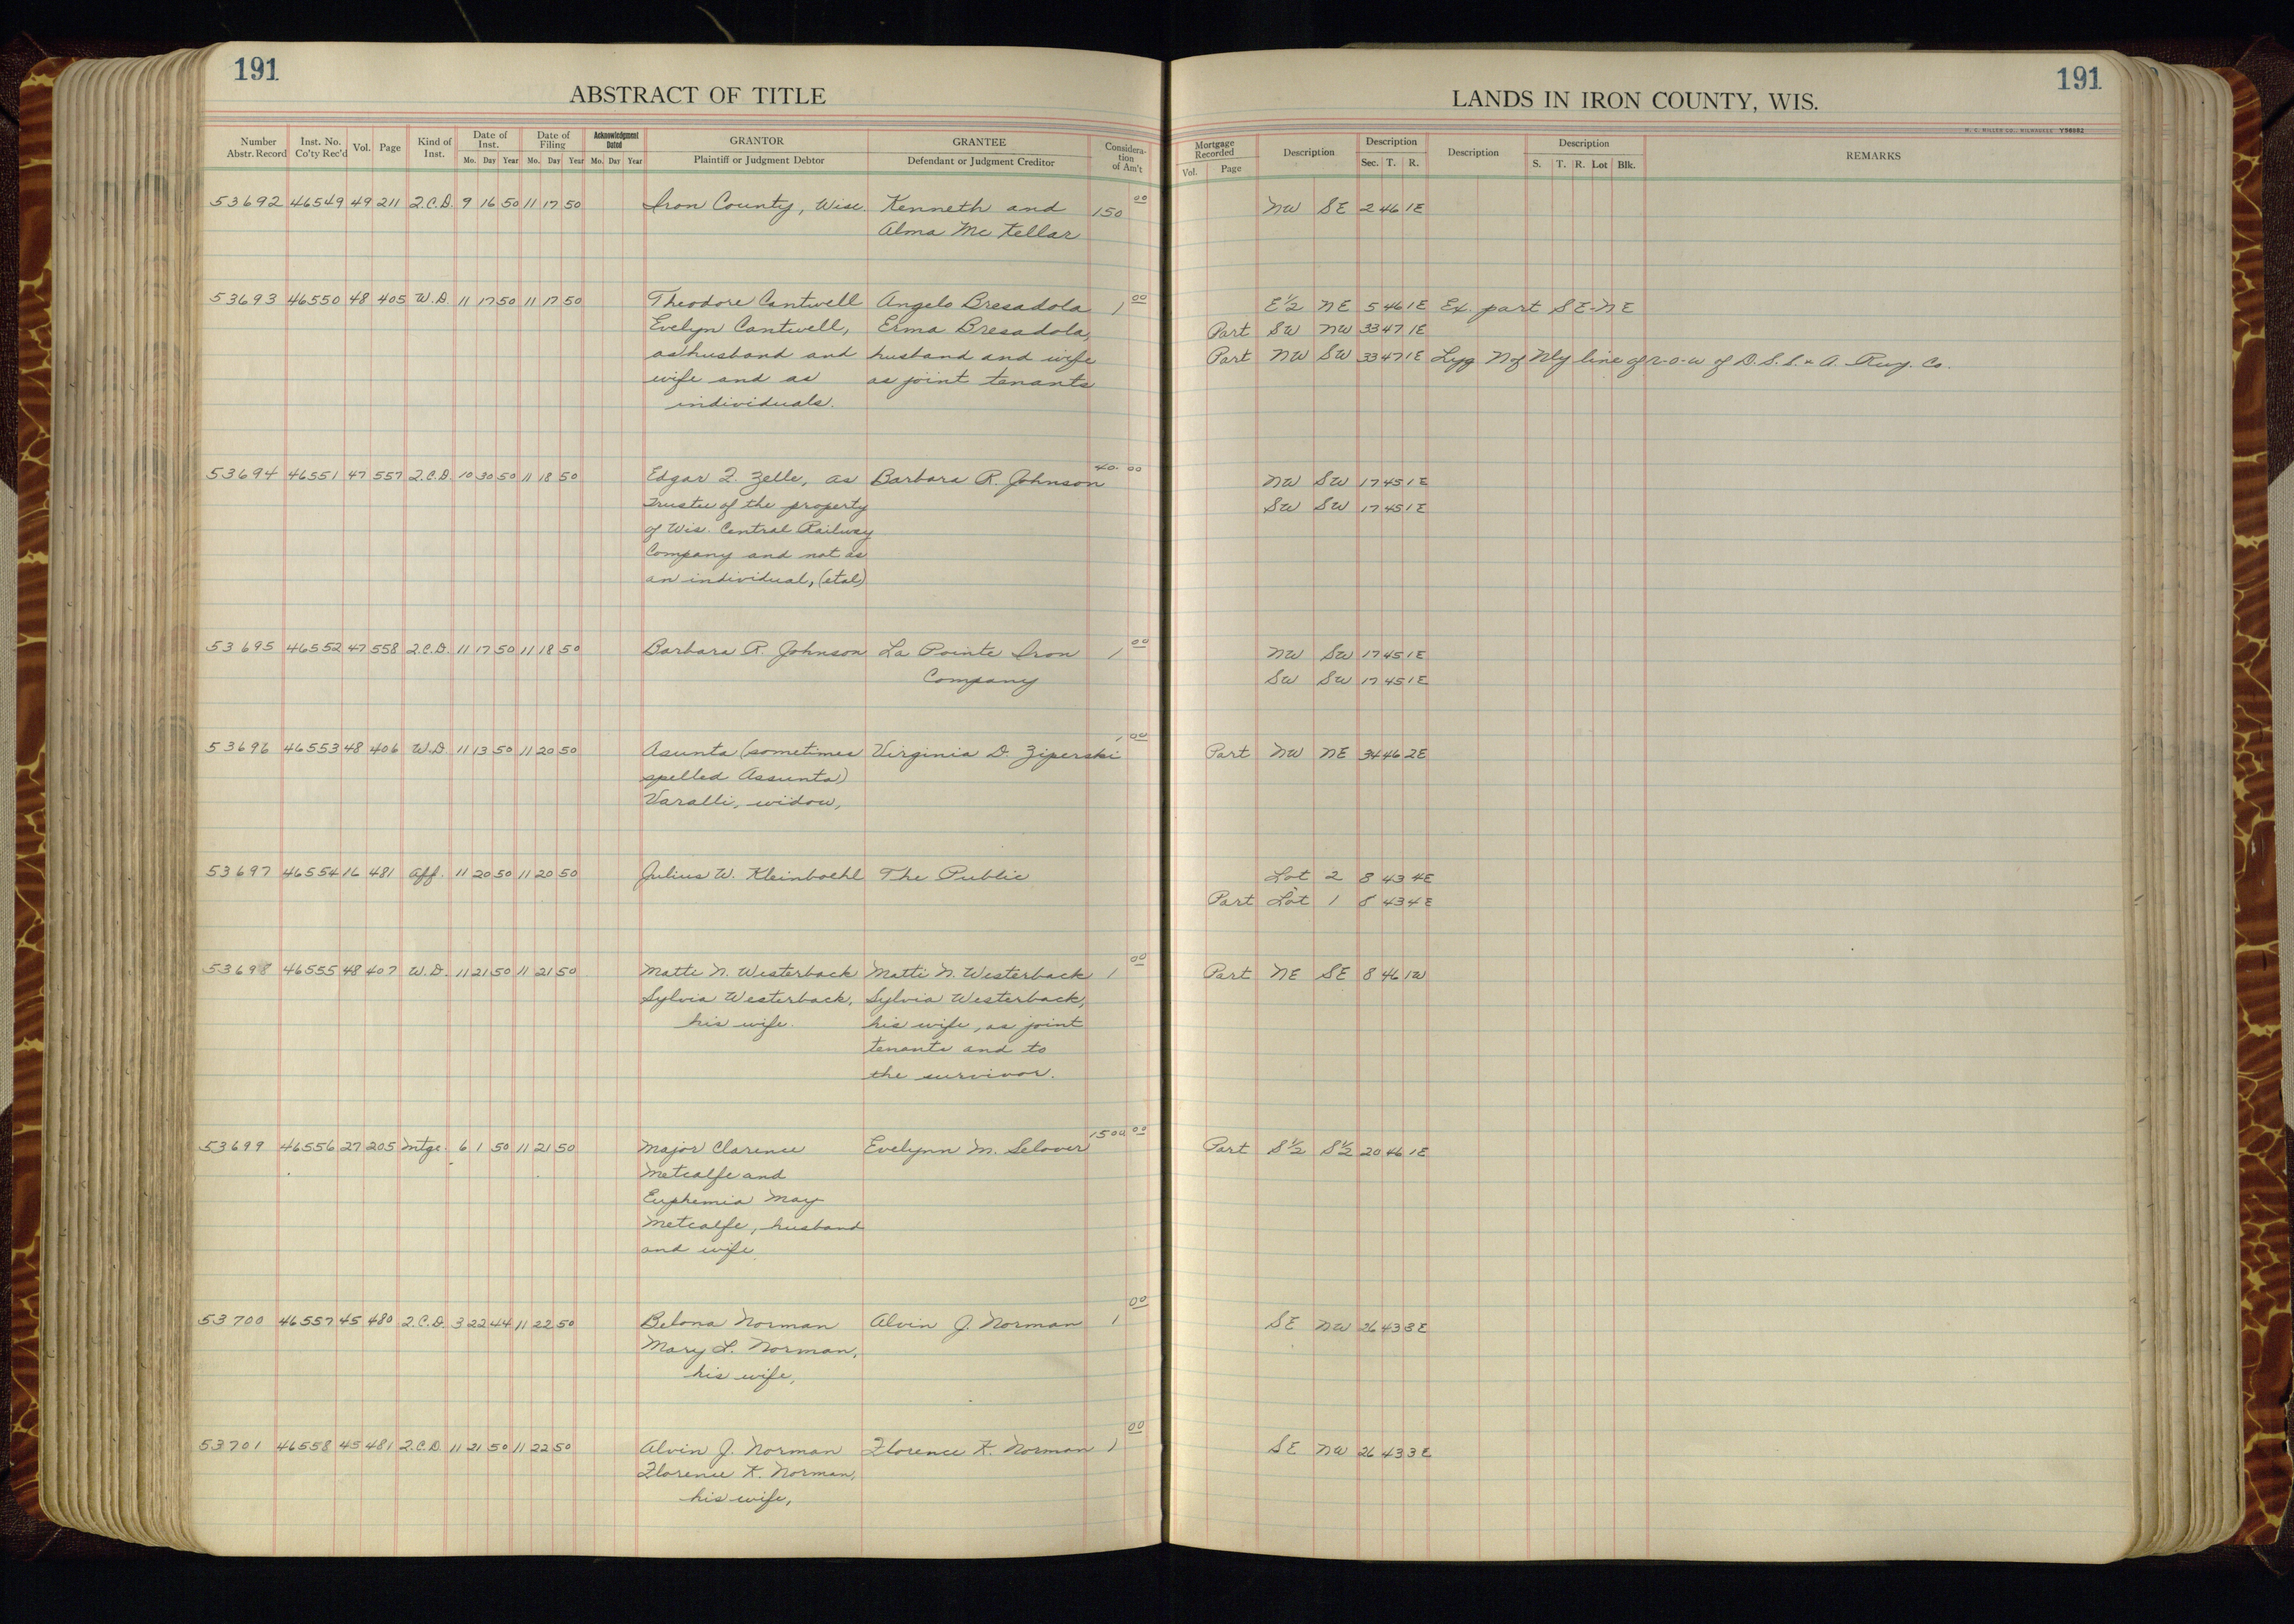 191
ABSTRACT OF TITLE
Number Abstr. Record | Inst. No. Co'ty Rec'd | Vol. | Page | Kind of Inst. | Date of Inst. Mo. Day Year | Date of Filing Mo. Day Year | Acknowledgment Dated Mo. Day Year | GRANTOR Plaintiff or Judgment Debtor | GRANTEE Defendant or Judgment Creditor | Consideration of Am't
53692 46549 49 211 Q.C.D. 9 16 50 11 17 50 Iron County, Wisc. Kenneth and 150 00
Alma Mc Kellar
53693 46550 48 405 W.D. 11 17 50 11 17 50 Theodore Cantwell Angelo Bresadola 1 00
Evelyn Cantwell, Erma Bresadola,
as husband and husband and wife
wife and as as joint tenants
individuals.
53694 46551 47 557 Q.C.D. 10 30 50 11 18 50 Edgar F. Zelle, as Barbara R. Johnson 40. 00
Trustee of the property
of Wis. Central Railway
Company and not as
an individual, (etal)
53695 46552 47 558 Q.C.D. 11 17 50 11 18 50 Barbara R. Johnson La Pointe Iron 1 00
Company
53696 46553 48 406 W.D. 11 13 50 11 20 50 Asunta (sometimes Virginia D. Ziperski 1 00
spelled Assunta)
Varalli, widow,
53697 46554 16 481 Aff. 11 20 50 11 20 50 Julius W. Kleinboehl The Public
53698 46555 48 407 W.D. 11 21 50 11 21 50 Matti N. Westerback Matti N. Westerback 1 00
Sylvia Westerback, Sylvia Westerback,
his wife. his wife, as joint
tenants and to
the survivor.
53699 46556 27 205 Mtge. 6 1 50 11 21 50 Major Clarence Evelynn M. Selover 1500 00
Metcalfe and
Euphemia May
Metcalfe, husband
and wife.
53700 46557 45 480 Q.C.D. 3 22 44 11 22 50 Belona Norman Alvin J. Norman 1 00
Mary L. Norman,
his wife,
53701 46558 45 481 Q.C.D. 11 21 50 11 22 50 Alvin J. Norman Florence K. Norman 1 00
Florence K. Norman,
his wife,
191
LANDS IN IRON COUNTY, WIS.
H. C. MILLER CO., MILWAUKEE Y56882
Mortgage Recorded Vol. Page | Description | Description Sec. T. R. | Description | Description S. T. R. Lot Blk. | REMARKS
NW SE 2 46 1E
E½ NE 5 46 1E Ex. part SE-NE
Part SW NW 33 47 1E
Part NW SW 33 47 1E Lyg N of Nly line of R-O-W of D.S.S. & A. Rwy. Co.
NW SW 17 45 1E
SW SW 17 45 1E
NW SW 17 45 1E
SW SW 17 45 1E
Part NW NE 34 46 2E
Lot 2 8 43 4E
Part Lot 1 8 43 4E
Part NE SE 8 46 1W
Part S½ S½ 20 46 1E
SE NW 26 43 3E
SE NW 26 43 3E